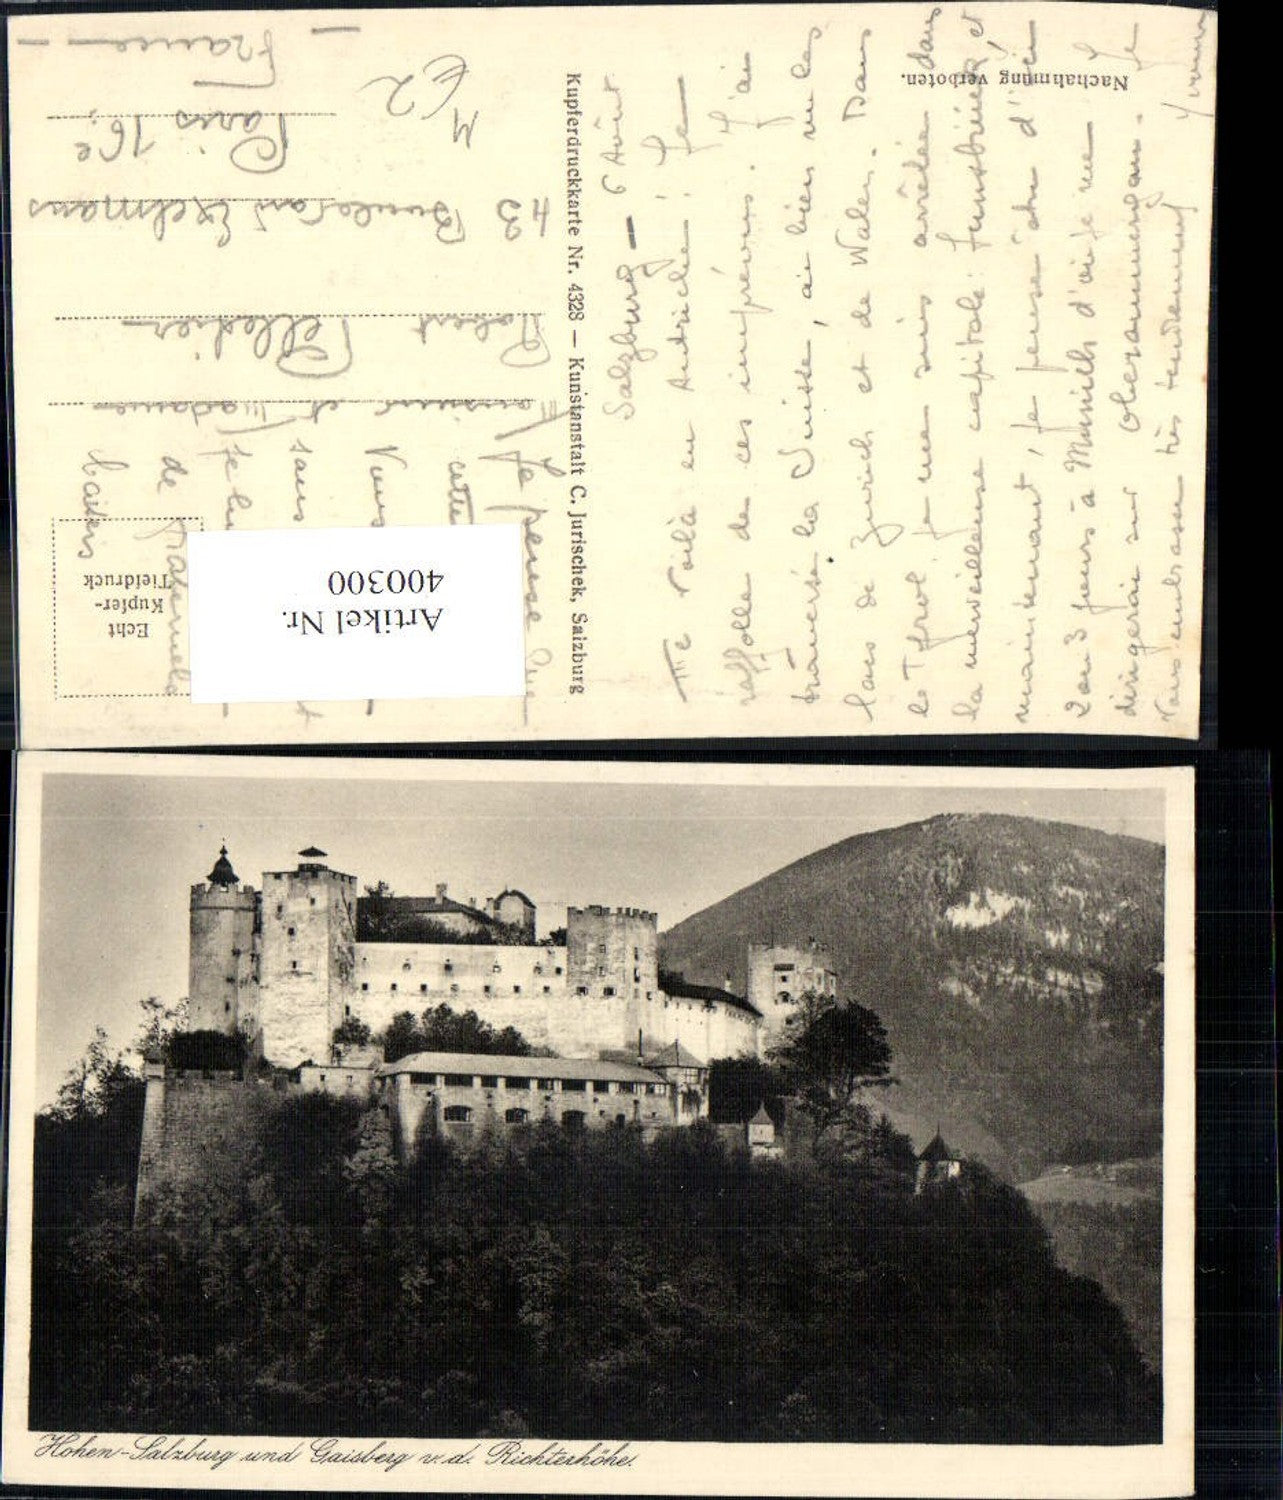 Salzburg — 6 Août
Me voilà en Autriche! Je
raffole de ces imprévus. J'ai
traversé la Suisse, ai bien vu les
lacs de Zurich et de Walen. Dans
le Tyrol, je me suis arrêtée dans
la merveilleuse capitale: Innsbrück, et
maintenant, je pense être d'ici
2 ou 3 jours à Munich d'où je me
dirigerai sur Oberammergau. Je
vous embrasse très tendrement
Yvonne
Nachahmung verboten.
Kupferdruckkarte Nr. 4328 — Kunstanstalt C. Jurischek, Salzburg
Je pense que
cette
Vous
sans
de
baisers
Echt
Kupfer-
Tiefdruck
Artikel Nr.
400300
Monsieur et Madame
Robert Pelletier
43 Boulevard Exelmans
Paris 16e
France
Hohen-Salzburg und Gaisberg v. d. Richterhöhe.